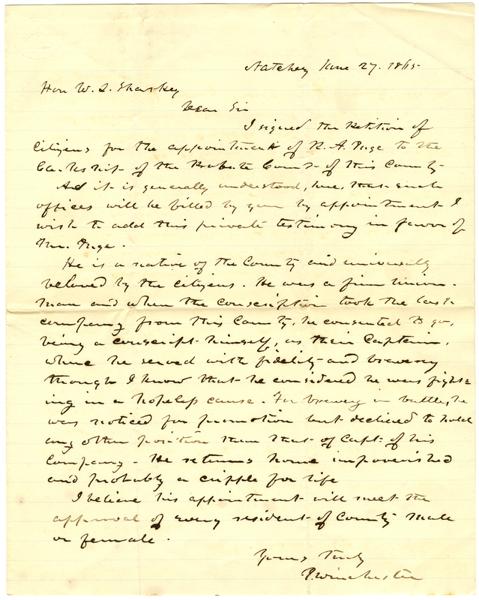 Natchez June 27. 1865
Hon W. L. Sharkey
Dear Sir
I signed the Petition of
Citizens for the appointment of R. A. Page to the
Clerkship of the Probate Court of this County
As it is generally understood, here, that such
offices will be filled by you by appointment I
wish to add this private testimony in favor of
Mr. Page.
He is a native of the County and universally
beloved by the citizens. He was a firm Union
man and when the conscription took the last
company from this County, he consented to go,
being a conscript himself, as their Captain,
where he served with fidelity and bravery
though I know that he considered he was fight
ing in a hopeless cause. For bravery in battle, he
was noticed for promotion but declined to hold
any other position than that of Capt. of his
Company. He returns home impoverished
and probably a cripple for life
I believe his appointment will meet the
approval of every resident of County male
or female.
Yours truly
P. Winchester